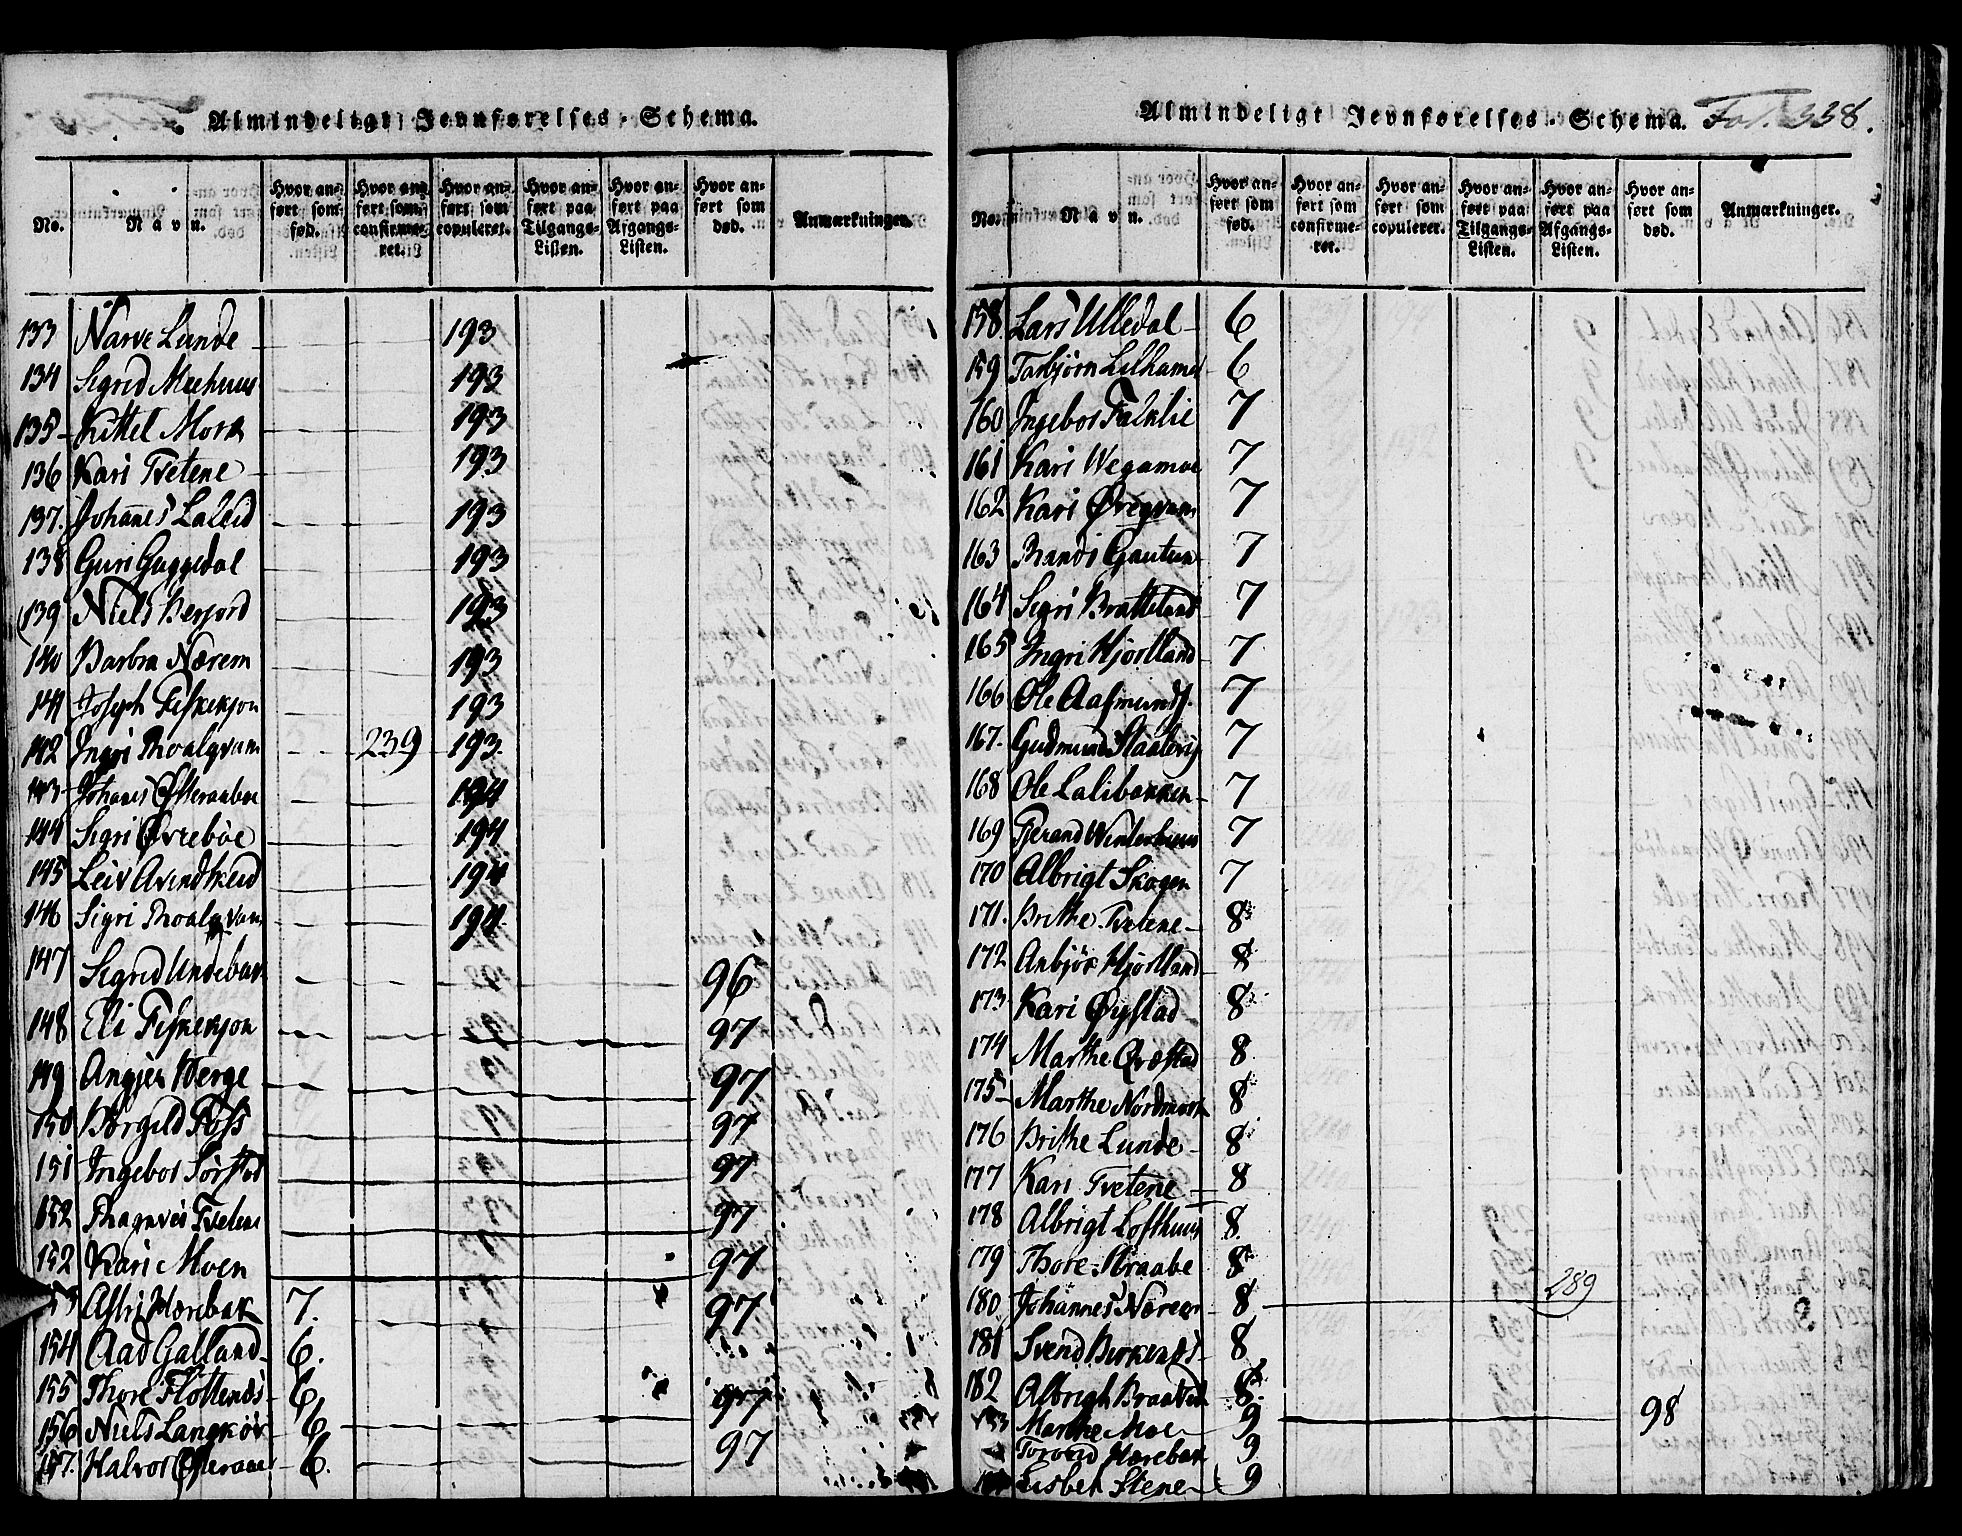 Almindeligt Jevnførelses-Schema.
No.
Navn.
Hvor anført som fød.
Hvor anført som confirmeret.
Hvor anført som copuleret.
Hvor anført paa Tilgangs-Listen.
Hvor anført paa Afgangs-Listen.
Hvor anført som død.
Anmærkninger.
133 Narve Lunde 193
134 Sigrid Meehuus 193
135 Kittel Mork 193
136 Kari Tvetene 193
137. Johanes Lalid 193
138 Guri Guggedal 193
139 Niels Berjord 193
140 Barbra Nærem 193
141 Joseph Fiskekjøn 193
142 Ingri Roalqvam 239 193.
143 Johanes Østeraabøe 194
144 Sigri Øvrebøe 194
145 Leiv Arindskeid 194
146 Sigri Roalqvam 194
147 Sigrid Undebak 96
148 Eli Fiskekjøn 97
149 Berge 97
150 Børgild Foss 97
151 Ingebor Sørstad 97
152 Ragnvei Tvetene 97
152 Kari Moen 97
153 Hærebak 7. 97
154 Aad Galland 6.
155 Thore Flottenæs 6 97
156 Niels Langkør 6
157. Halvor 6. 97
Almindeligt Jevnførelses-Schema. Fol. 338.
No.
Navn.
Hvor anført som fød.
Hvor anført som confirmeret.
Hvor anført som copuleret.
Hvor anført paa Tilgangs-Listen.
Hvor anført paa Afgangs-Listen.
Hvor anført som død.
Anmærkninger.
158 Lars Ulledal 6
159 Torbjørn Lilhamer 6
160 Ingebor Falklie 7
161 Kari Wegamoe 7
162 Kari Øregvam 7
163 Randi Gautun 7
164 Sigri Bratteland 7
165 Ingri Hjortland 7
166 Ole Aasmunds. 7
167. Gudmund 7
168 Ole Lalibakken 7
169 Tjerand Winterhuus 7
170 Albrigt Skogen 7
171. Brithe Tvetene 8
172 Anbjør Hjortland 8
173 Kari Øystad 8
174 Marthe Qvæstad 8
175 Marthe Nordmork 8
176 Brithe Lunde 8
177 Kari Tvetene 8
178 Albrigt Lofthuus 8.
179 Thore Straabe 8
180 Johannes Nærem 8 289
181 Svend Birkenæs 8
182 Albrigt Braatveit 8.
Marthe Moe 9 98
Hærebak 9
Lisbet Stene 9